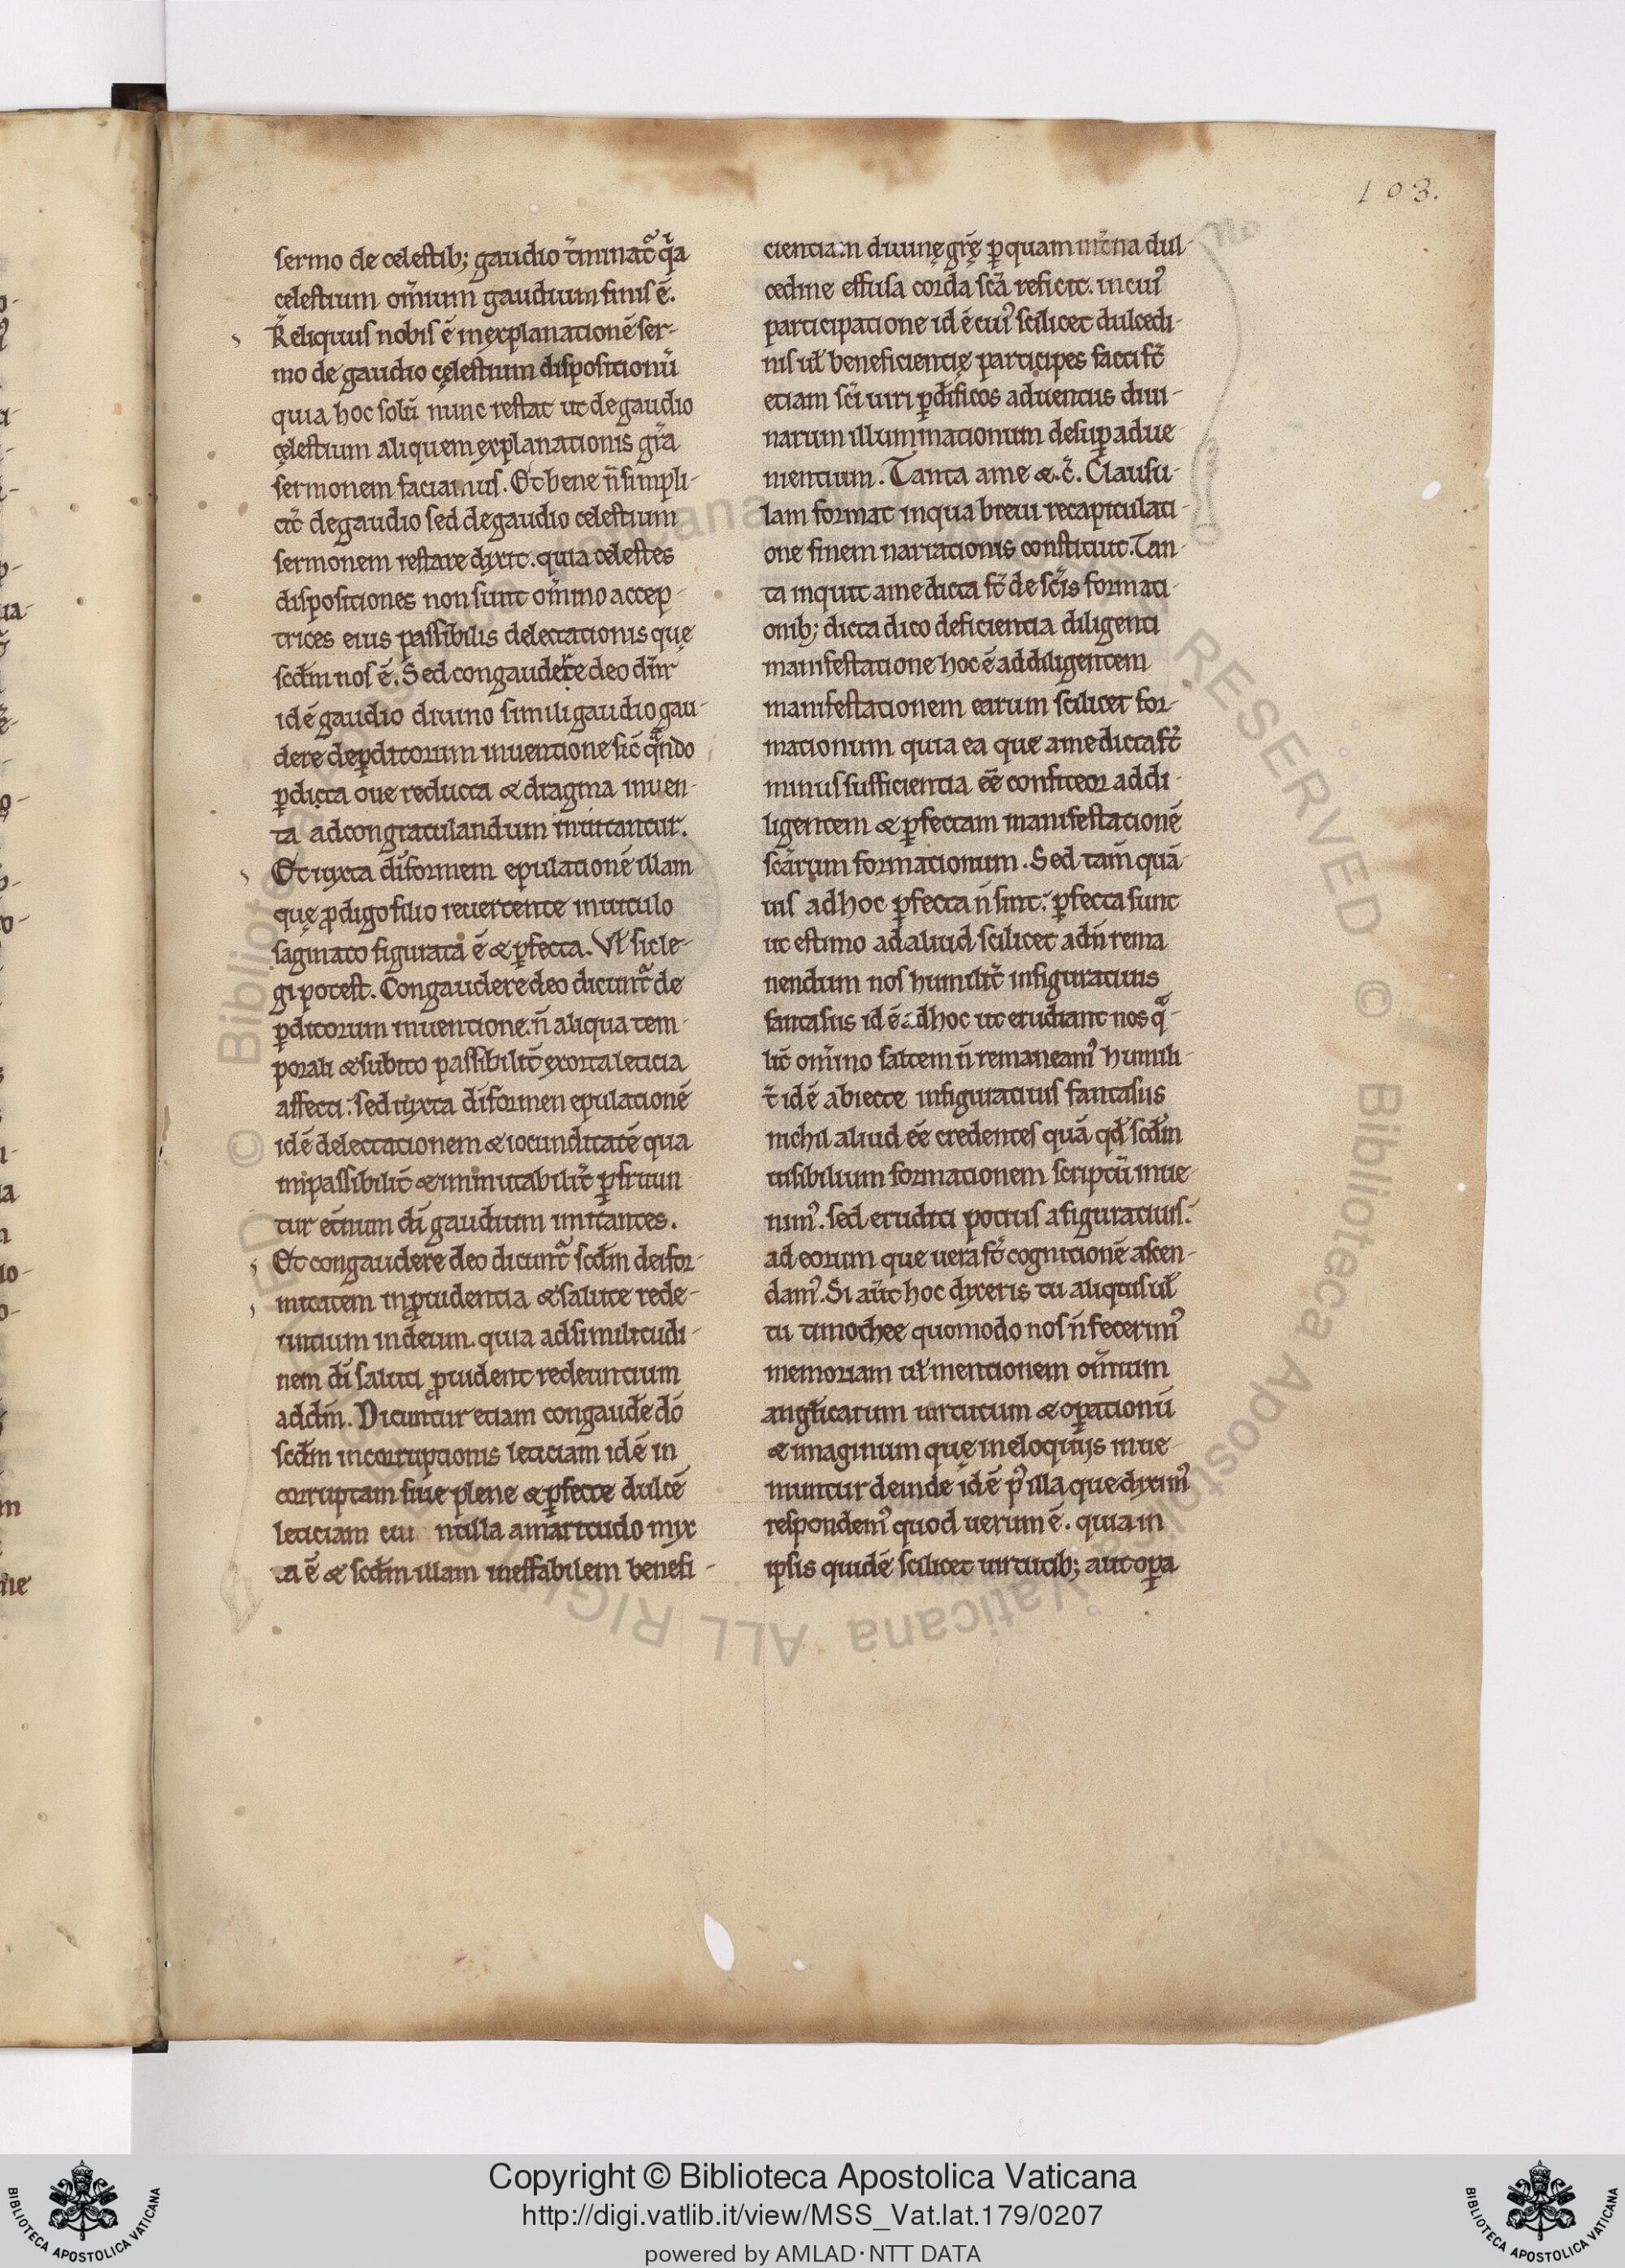 103.
sermo de celestib; gaudio t̃minat᷑ q̃a
celestium om̃ium gaudium finis ē.
Reliquus nobis ē in explanationē ser-
mo de gaudio cęlestium dispositionū
quia hoc solū nunc restat ut de gaudio
cęlestium aliquem explanationis gr̃a
sermonem faciamus. Et bene ñ simpli-
cit̃ de gaudio sed de gaudio celestium
sermonem restare dixit. quia celestes
dispositiones non sunt om̃ino accep-
trices eius passibilis delectationis quę
scd̃m nos ē. Sed congaudere deo dñr
id ē gaudio diuino simili gaudio gau-
dere de ꝑditorum inuentione sic̃ q̃ndo
ꝑdita oue reducta & dragma inuen-
ta ad congratulandum inuitantur.
Et iuxta dīformem epulationē illam
quę ꝓdigo filio reuertente in uitulo
saginato figurata ē & ꝑfecta. Vł sic le-
gi potest. Congaudere deo dicunt᷑ de
ꝑditorum inuentione. ñ aliqua tem-
porali & subito passibilit̃ exorta leticia
affecti: sed iuxta dīformen epulationē
id ē delectationem & iocunditatē qua
inpassibilit̃ & inmutabilit̃ ꝑfruun-
tur et̃num dī gaudium imitantes.
Et congaudere deo dicunt᷑ scd̃m deifor-
mitatem in ꝓuidentia & salute rede-
untium in deum. quia ad similitudi-
nem dī saluti ꝓuident redeuntium
ad dñm. Dicuntur etiam congaudē dō
scd̃m incorruptionis leticiam id ē in
corruptam siue plene & ꝑfecte dulcē
leticiam cui nulla amaritudo mix
ta ē & scd̃m illam ineffabilem benefi-
cientiam diuinę gr̃ę ꝑ quam int̃na dul-
cedine effusa corda sc̃a reficit. in cuiꝰ
participatione id ē cuiꝰ scilicet dulcedi-
nis uł beneficientię participes facti st̃
etiam sc̃i uiri ꝑ dīficos aduentus diui-
narum illuminationum desuꝑ adue
nientium. Tanta a me &.c̃. Clausu-
lam format in qua breui recapitulati-
one finem narrationis constituit. Tan-
ta inquit a me dicta st̃ de sc̃is formati-
onib; dicta dico deficientia diligenti
manifestatione hoc ē ad diligentem
manifestationem earum scilicet for-
mationum quia ea que a me dicta st̃
minus sufficientia eē confiteor ad di-
ligentem & ꝑfectam manifestationē
sc̃arum formationum. Sed tam̃ quā-
uis ad hoc ꝑfecta ñ sint: ꝑfecta sunt
ut estimo ad aliud scilicet ad ñ rema
nendum nos humilit̃ in figuratiuis
fantasiis id ē ad hoc ut erudiant nos q̃-
lit̃ om̃ino saltem ñ remaneamꝰ humili-
t̃ id ē abiecte in figuratiuis fantasiis
nichil aliud eē credentes quā qd̃ scd̃m
uisibilium formationem scriptū inue-
nimꝰ. sed eruditi potius a figuratiuis:
ad eorum que uera st̃ cognitionē ascen-
damꝰ. Si aūt hoc dixeris tu aliquis uł
tu timothee quomodo nos ñ fecerimꝰ
memoriam uł mentionem om̃ium
anglicarum uirtutum & oꝑationū
& imaginum quę in eloquiis inue-
niuntur deinde id ē pꝰ illa que diximꝰ
respondemꝰ quod uerum ē. quia in
ipsis quidē scilicet uirtutib; aut oꝑa
Copyright © Biblioteca Apostolica Vaticana
http://digi.vatlib.it/view/MSS_Vat.lat.179/0207
powered by AMLAD · NTT DATA
BIBLIOTECA APOSTOLICA VATICANA
BIBLIOTECA APOSTOLICA VATICANA